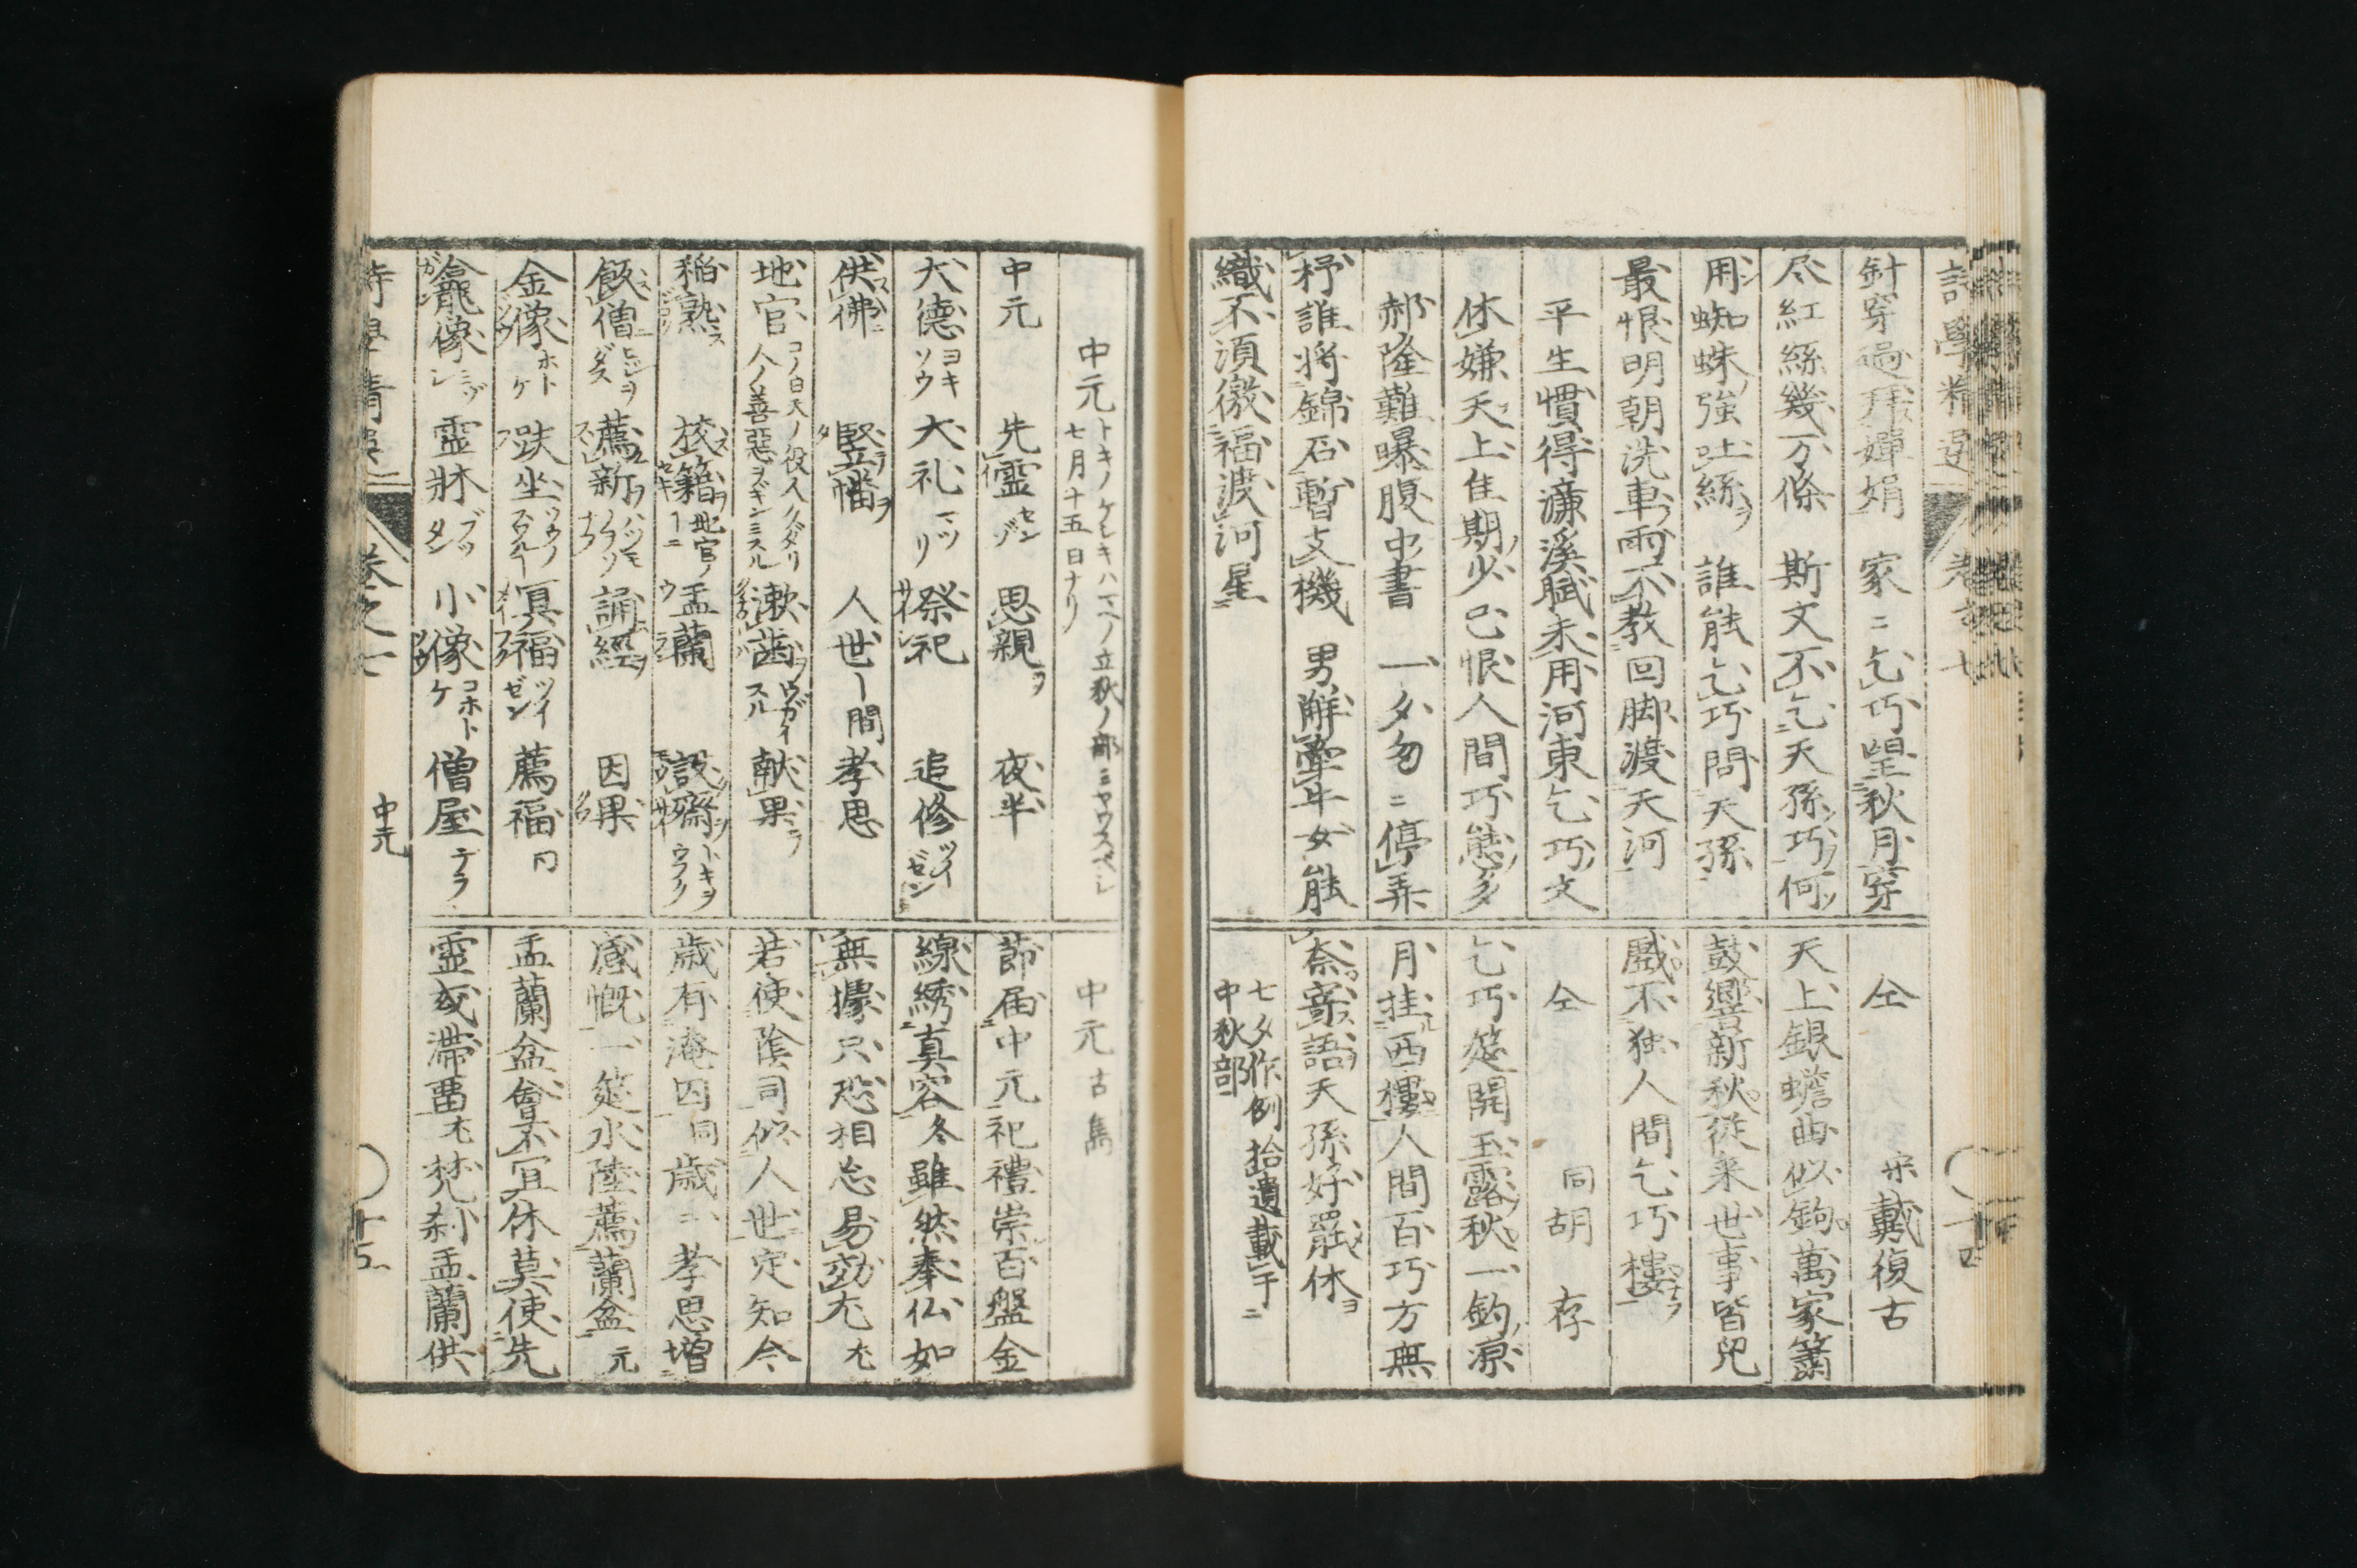 針穿過拜嬋娟 家ニ乞巧望秋月穿
尽紅絲幾万條 斯文不乞天孫巧何
用蜘蛛強吐絲 誰能乞巧問天孫
最恨明朝洗車雨不教回脚渡天河
平生慣得濂溪賦未用河東乞巧文
休嫌天上佳期少已恨人間巧態多
郝隆難曝腹中書 一夕匆ニ停弄
杼誰將錦石暫支機 男解牽牛女能
織不須徼福渡河星
仝 宋戴復古
天上銀蟾曲似鉤萬家簫
鼓響新秋從来世事皆兒
戲不独人間乞巧樓
仝 同胡 存
乞巧筵開玉露秋一鈎凉
月挂西樓人間百巧方無
奈寄語天孫好罷休
七夕作例拾遺載于
中秋部
中元 トキノケシキハマヘノ立秋ノ部ミヤワスベシ
七月十五日ナリ
中元 先霊 思親 夜半
大德 ヨキソウ 大礼 マツリ 祭祀 追修 ツイゼン
供佛 竪幡 人世ー間 孝思
地官 コノ日天ノ役人クダリ
人ノ善惡ヲギンミスル 漱齒 ウガイスル 献果
稲熟 校籍 孟蘭 設齋
飯僧 薦新 誦経 因果
金像 ホトケ 趺坐 冥福 ツイゼン 薦福 同
龕像 霊牀 ブツタン 小像 コホトケ 僧屋 テラ
中元古雋
節届中元祀禮崇百盤金
線綉真容冬雖然奉仏如
無據只恐相忘易効尢
若使陰司似人世定知今
歳有淹囚同歳ニ孝思增
感慨一筵水陸薦蘭盆元
孟蘭盆會不冝休莫使先
霊或滞畱 梵刹孟蘭供
中元
十五